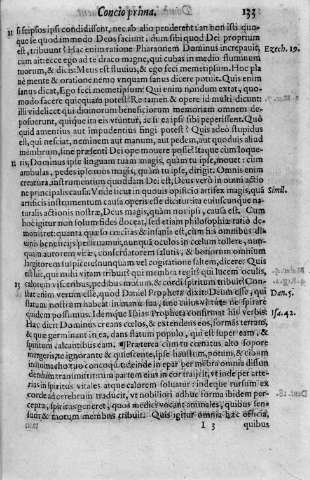 Concio prima. 133
si seipsos ipsi condidissent, nec ab alio penderent: an non isti quo-
que se quodammodo Deos faciunt: dum sibi quod Dei proprium
est, tribuunt? Hac enim ratione Pharaonem Dominus increpauit,
Ezech. 29.
cum ait: ecce ego ad te draco magne, qui cubas in medio fluminum
tuorum, & dicis: Meus est fluuius, & ego feci memetipsum. Hoc pla
nè mente & oratione nemo vnquam sanus dicere potuit. Quis enim
sanus dicat, Ego feci memetipsum? Qui enim nondum extat, quo-
modo facere quicquam potest? Re tamen & opere id multi dicunt:
illi videlicet qui diuinorum beneficiorum memoriam omnem de-
posuerunt, quique ita eis vtuntur, ac si ea ipsi sibi peperissent. Quò
quid amentius aut impudentius fingi potest? Quis adeò stupidus
est, qui nesciat, neminem aut manum, aut pedem, aut quoduis aliud
membrum, sine præsenti Dei ope mouere posse? Itaque cum loque-
ris, Dominus ipse linguam tuam magis, quàm tu ipse, mouet: cum
ambulas, pedes ipse tuos magis, quàm tu ipse, dirigit. Omnis enim
creatura, instrumentum quoddam Dei est, Deus verò in omni actio
ne principalis causa. Vnde sicut in quouis opificio artifex magis, quà
Simil.
artificis instrumentum causa operis esse dicitur: ita eius cunque na-
turalis actionis nostræ, Deus magis, quàm nos ipsi, causa est. Cum
hoc igitur non solum fides doceat, sed etiam philosophiæ ratio de-
monstret: quanta quæso cæcitas & insania est, cum his omnibus di-
uinis beneficijs perfruamur, nunquà oculos in cœlum tollere, nun-
quam autorem vitæ, conseruatorem salutis, & bonorum omnium
largitorem suspicere, nunquam vel cogitatione saltem, dicere: Quis
est ille, qui mihi vitam tribuit? qui membra regit? qui lucem oculis,
calorem visceribus, pedibus motum, & cordi spiritum tribuit?
enim verum est ille, quod Daniel Propheta dixit: Deum esse, qui
Dan. 5.
flatum nostrum habeat in manu sua, sine cuius virtute ne spirare
quidem possumus. Idemque Isaias Propheta confirmat his verbis:
Isa. 42.
Hæc dicit Dominus creans cœlos, & extendens eos, formans terram,
& quæ germinant in ea, dans flatum populo, qui est super eam, &
spiritum calcantibus eam. Præterea cum tu cœnatus alto sopore
ignorante & quiescente, ipse haustum, potum, & cibum
concoquit: deinde in epar per membra omnia diffun
dendum transmittit: tum partem eius in cor traijcit, vt inde per arte-
rias in spiritus vitales atque calorem soluatur: indeque rursum ex
corde ad cerebrum traducit, vt nobiliori adhuc forma ibidem per-
cepta, spiritus generet, quos medici vocant animales, quibus sen-
sum & motum membris tribuit. Quis igitur omnia hæc officia,
I 3 quibus